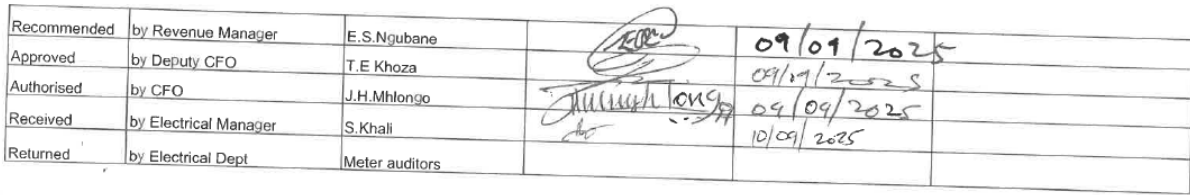 Recommended by Revenue Manager E.S.Ngubane 09/09/2025
Approved by Deputy CFO T.E Khoza 09/09/2025
Authorised by CFO J.H.Mhlongo 09/09/2025
Received by Electrical Manager S.Khali 10/09/2025
Returned by Electrical Dept Meter auditors